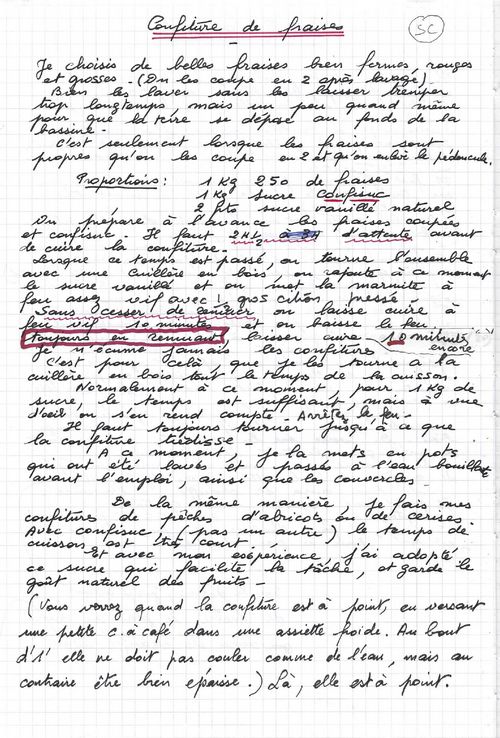 Confiture de fraises
SC
Je choisis de belles fraises bien fermes, rouges
et grosses - (On les coupe en 2 après lavage)
Bien les laver sans les laisser tremper
trop longtemps, mais un peu quand même
pour que la terre se dépose au fonds de la
bassine -
C'est seulement lorsque les fraises sont
propres qu'on les coupe en 2 et qu'on enlève le pédoncule.
Proportions : 1 Kg 250 de fraises
1 Kg sucre confisuc
2 pts sucre vanillé naturel
On prépare à l'avance les fraises coupées
et confisuc Il faut 2H1/2 d'attente avant
de cuire la confiture.
Lorsque ce temps est passé, on tourne l'ensemble
avec une cuillère en bois, on rajoute à ce moment
le sucre vanillé et on met la marmite à
feu assez vif avec 1 gros citron pressé.
Sans cesser de remuer on laisse cuire à
feu vif 10 minutes et on baisse le feu.
toujours en remuant, laisser cuire 10 minutes
encore
Je n'écume jamais les confitures
C'est pour celà, que je les tourne a la
cuillère en bois tout le temps de la cuisson.
Normalement à ce moment pour 1 Kg de
sucre, le temps est suffisant, mais à vue
d'oeil on s'en rend compte - Arrêtez le feu -
Il faut toujours tourner jusqu'à ce que
la confiture tiédisse -
A ce moment, je la mets en pots
qui ont été lavés et passés à l'eau bouillante
avant l'emploi, ainsi que les couvercles -
De la même manière, je fais mes
confitures de pêches d'abricots ou de cerises.
Avec confisuc, (pas un autre) le temps de
cuisson est très court.
Et avec mon expérience, j'ai adopté
ce sucre qui facilite la tâche, et garde le
goût naturel des fruits -
(Vous verrez quand la confiture est à point, en versant
une petite c. à café dans une assiette froide. Au bout
d'1' elle ne doit pas couler comme de l'eau, mais au
contraire être bien épaisse.) Là, elle est à point.